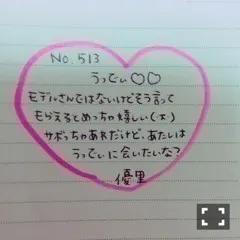 No. 513
うってぃ♡♡
モデルさんではないけどそう言って
もらえるとめっちゃ嬉しい(艹)
サボっちゃあれだけど、あたしは
うってぃに会いたいな?
優里